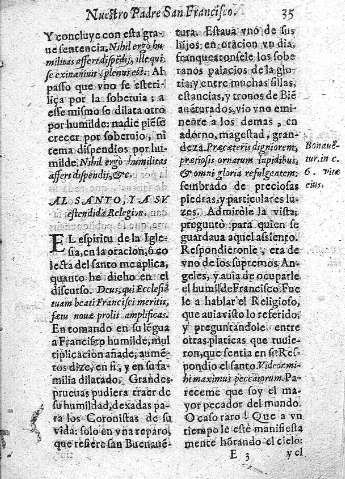 Nuestro Padre San Francisco. 35
Y concluye con esta gra
ue sentencia. Nihil ergo hu-
militas affert dispedij, ille qui
se exinaniuit, plenus est. Al
passo que vno se esteri-
liça por la soberuia; a
esse mismo se dilata otro
por humilde: nadie piēse
crecer por soberuio, ni
tema dispendios por hu-
milde. Nihil ergo humilitas
affert dispedij, &c.
AL SANTO, Y A SV
estendida Religion.
EL espiritu de la Igle-
sia, en la oracion, ò co
lecta del santo me aplica,
quanto he dicho en el
discurso. Deus, qui Ecclesiā
tuam beati Francisci meritis,
fœtu nouæ prolis amplificas.
En tomando en su lēgua
a Francisco humilde, mul
tiplicacion añade; aumē-
tos dize, en fi, y en su fa-
milia dilatado. Grandes
prueuas pudiera traer de
su humildad, dexadas para
los Coronistas de su
vida: solo en vna reparo,
que refiere san Buenauē-
tura. Estaua vno de sus
hijos en oracion vn dia,
franqueansele los sobe
ranos palacios de la glo-
ria, y entre muchas sillas,
estancias, y tronos de Biē
auēturados, vio vno emi
nente a los demas, en
adorno, magestad, gran-
deza. Præcæteris digniorem,
pretiosis ornatum lapidibus,
& omni gloria refulgentem;
sembrado de preciosas
piedras, y particulares lu-
zes. Admiròle la vista;
preguntò para quien se
guardaua aquel assiento.
Respondieronle, era de
vno de los supremos An-
geles, y auia de ocuparle
el humilde Francisco. Fue
le a hablar el Religioso,
que auia visto lo referido,
y preguntandole entre
otras platicas que tuuie-
ron, que sentia en si? Res-
pondio el santo. Videor mi-
hi maximus peccatorum. Pa-
receme que soy el ma-
yor pecador del mundo.
O caso raro! Que a vn
tiempo le estè manifiesta
mente hōrando el cielo:
E 3 y el
Bonauē-
tur. in c.
6. vitæ
eius.